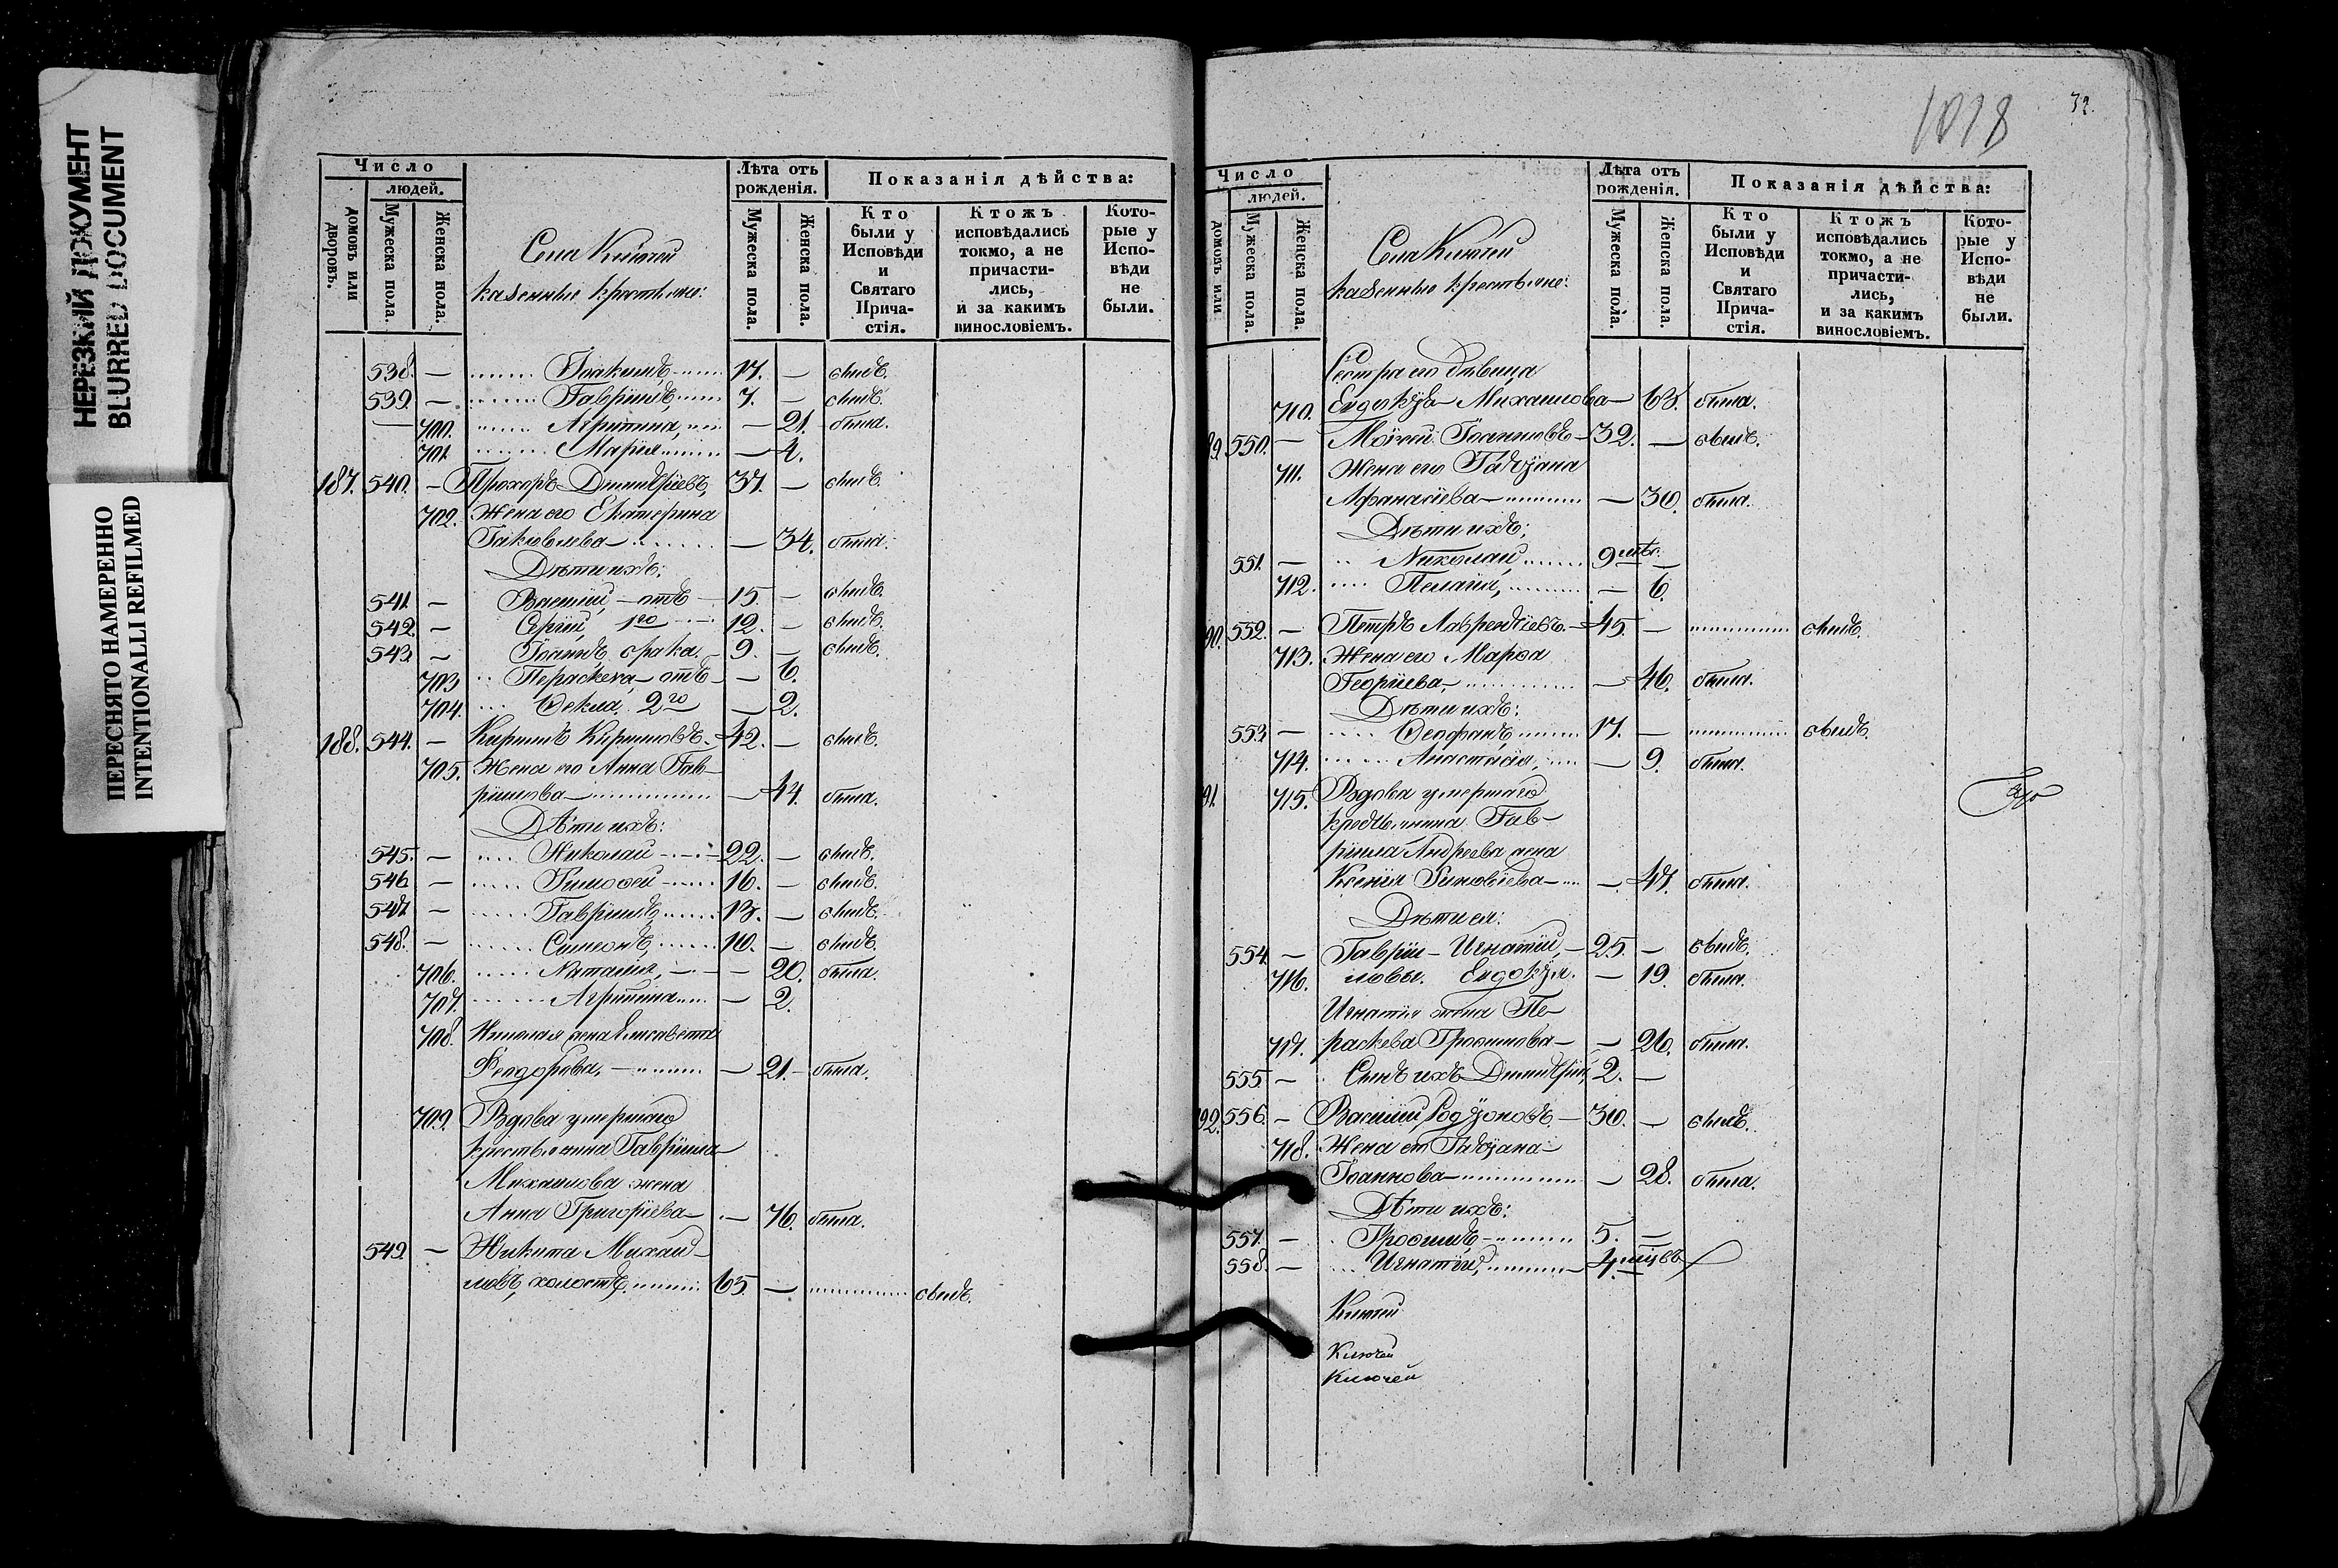 НЕРЕЗКИЙ ДОКУМЕНТ
BLURRED DOCUMENT
ПЕРЕСНЯТО НАМЕРЕННО
INTENTIONALLI REFILMED
Число
людей.
домовъ или дворовъ.
Мужеска пола.
Женска пола.
Села Ключей
казенные крестьяне:
Лѣта отъ рожденія.
Мужеска пола.
Женска пола.
Показанія дѣйства:
Кто были у Исповѣди и Святаго Прича-стія.
Ктожъ исповѣдались токмо, а не причасти-лись, и за какимъ винословіемъ.
Кото-рые у Испо-вѣди не были.
538. — Іоакимъ 17. — былъ.
539. — Гавріилъ 7. — былъ.
— 700. Агрипина, — 21. была.
701. Марія — 4.
187. 540. — Прохоръ Димитріевъ, 37. — былъ.
702. Жена его Екатерина
Іаковлева — 34. была.
Дѣти ихъ:
541. — Василій, — отъ 15. — былъ.
542. — Сергій, 1го 12. — былъ.
543. — Іоаннъ, брака. 9. — былъ.
703 Параскева, — отъ — 6.
704. Ѳекла, 2го — 2.
188. 544. — Кириллъ Кирилловъ. 42. — былъ.
705. Жена его Анна Гав-
ріилова — 44. была.
Дѣти ихъ:
545. — Николай 22. — былъ.
546. — Тимоѳей 16. — былъ.
547. — Гавріилъ 13. — былъ.
548. — Симеонъ 10. — былъ.
706. Наталія, — 20. была.
707. Агрипина — 2.
708. Николая жена Елисавета
Феодорова, — 21. была.
709. Вдова умершаго
крестьянина Гавріила
Михаилова жена
Анна Григоріева — 76. была.
549. — Никита Михаи-
ловъ, холостъ, 65. — былъ.
1018
32.
Число
людей.
домовъ или
Мужеска пола.
Женска пола.
Села Ключей
казенные крестьяне:
Лѣта отъ рожденія.
Мужеска пола.
Женска пола.
Показанія дѣйства:
Кто были у Исповѣди и Святаго Прича-стія.
Ктожъ исповѣдались токмо, а не причасти-лись, и за какимъ винословіемъ.
Кото-рые у Испо-вѣди не были.
Сестра его дѣвица
710. Евдокія Михаилова — 63. была.
89. 550. — Моисей Іоанновъ 32. — былъ.
711. Жена его Татіана
Афанасіева — 30. была.
Дѣти ихъ:
551. — Николай, 9 —
712. Пелагія, — 6.
90. 552. — Петръ Лаврентіевъ. 45. — былъ.
713. Жена его Марѳа
Георгіева, — 46. была.
Дѣти ихъ:
553. — Ѳеофанъ, 17. — былъ.
714. Анастасія, — 9. была.
91. 715. Вдова умершаго
крестьянина Гав-
ріила Андреева жена
Ксенія Зиновіева — 47. была.
Дѣти ея:
554. — Гаврі- Игнатій, 25. — былъ.
716. ловы. Евдокія. — 19. была.
Игнатія жена Па-
717. раскева Трофимова — 26. была.
555. — Сынъ ихъ Димитрій, 2. —
92. 556. — Василій Родіоновъ — 30. — былъ.
718. Жена его Татіана
Іоаннова — 28. была.
Дѣти ихъ:
557. — Трофимъ 5. —
558. — Игнатій, 4. мцвъ
Ключей
Ключей
Ключей